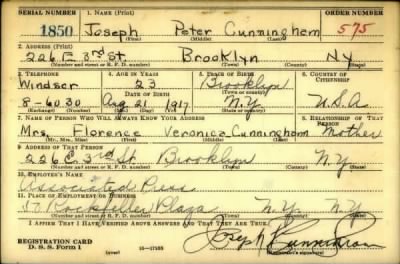 SERIAL NUMBER 1. NAME (Print) ORDER NUMBER
1850 Joseph Peter Cunninghem 575
(First) (Middle) (Last)
2. ADDRESS (Print)
226 E 3rd St. Brooklyn Ny
(Number and street or R. F. D. number) (Town) (County) (State)
3. TELEPHONE 4. AGE IN YEARS 5. PLACE OF BIRTH 6. COUNTRY OF CITIZENSHIP
Windsor 23 Brooklyn
DATE OF BIRTH (Town or county)
8-6030 Aug 21 1917 N.Y. U.S.A
(Exchange) (Number) (Mo.) (Day) (Yr.) (State or country)
7. NAME OF PERSON WHO WILL ALWAYS KNOW YOUR ADDRESS 8. RELATIONSHIP OF THAT PERSON
Mrs Florence Veronica Cunningham Mother
(Mr., Mrs., Miss) (First) (Middle) (Last)
9. ADDRESS OF THAT PERSON
226 E 3rd St Brooklyn N.Y
(Number and street or R. F. D. number) (Town) (County) (State)
10. EMPLOYER'S NAME
Associated Press
11. PLACE OF EMPLOYMENT OR BUSINESS
Rockfeller Plaza N.Y. N.Y.
(Number and street or R. F. D. number) (Town) (County) (State)
I AFFIRM THAT I HAVE VERIFIED ABOVE ANSWERS AND THAT THEY ARE TRUE.
REGISTRATION CARD Joseph Cunningham
D. S. S. Form 1 (over) (Registrant's signature)